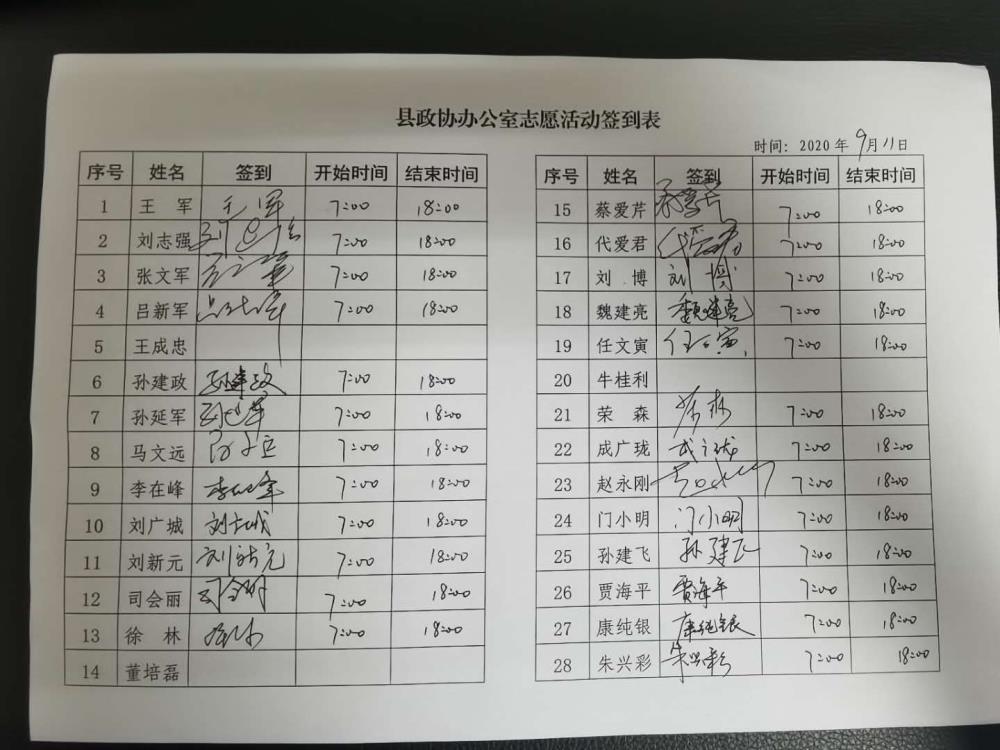 县政协办公室志愿活动签到表
时间：2020年9月11日
序号 姓名 签到 开始时间 结束时间
1 王军 王军 7:00 18:00
2 刘志强 7:00 18:00
3 张文军 7:00 18:00
4 吕新军 7:00 18:00
5 王成忠
6 孙建政 孙建政 7:00 18:00
7 孙延军 孙延军 7:00 18:00
8 马文远 7:00 18:00
9 李在峰 李在峰 7:00 18:00
10 刘广城 刘广城 7:00 18:00
11 刘新元 刘新元 7:00 18:00
12 司会丽 7:00 18:00
13 徐林 7:00 18:00
14 董培磊
序号 姓名 签到 开始时间 结束时间
15 蔡爱芹 7:00 18:00
16 代爱君 7:00 18:00
17 刘博 刘博 7:00 18:00
18 魏建亮 魏建亮 7:00 18:00
19 任文寅 任文寅 7:00 18:00
20 牛桂利
21 荣森 荣森 7:00 18:00
22 成广珑 成广珑 7:00 18:00
23 赵永刚 7:00 18:00
24 门小明 门小明 7:00 18:00
25 孙建飞 孙建飞 7:00 18:00
26 贾海平 贾海平 7:00 18:00
27 康纯银 康纯银 7:00 18:00
28 朱兴彩 朱兴彩 7:00 18:00